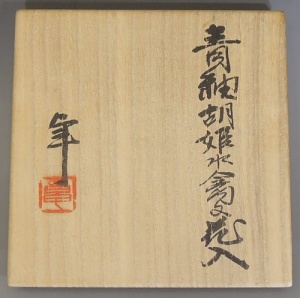 青釉胡姫水禽文花入
年